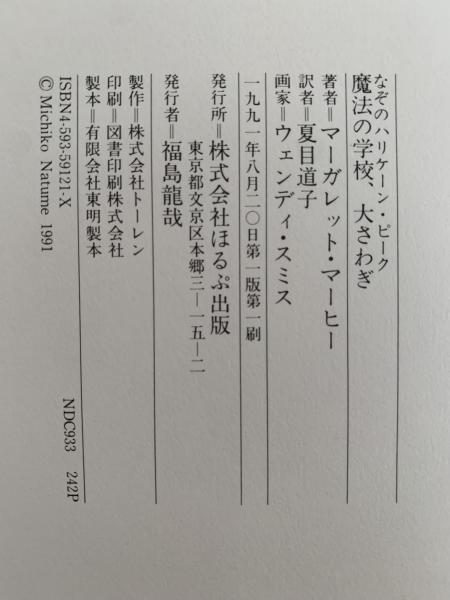 なぞのハリケーン・ピーク
魔法の学校、大さわぎ
著者＝マーガレット・マーヒー
訳者＝夏目道子
画家＝ウェンディ・スミス
一九九一年八月二〇日第一版第一刷
発行所＝株式会社ほるぷ出版
東京都文京区本郷三―一五―二
発行者＝福島龍哉
製作＝株式会社トーレン
印刷＝図書印刷株式会社
製本＝有限会社東明製本
ISBN4-593-59121-X NDC933 242P
© Michiko Natume 1991